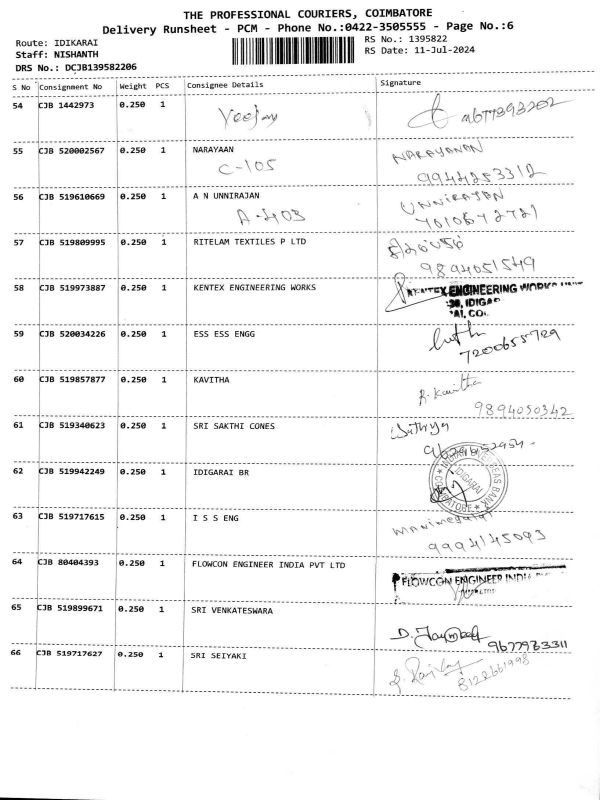 THE PROFESSIONAL COURIERS, COIMBATORE
Delivery Runsheet - PCM - Phone No.:0422-3505555 - Page No.:6
Route: IDIKARAI
RS No.: 1395822
Staff: NISHANTH
RS Date: 11-Jul-2024
DRS No.: DCJB139582206
S No Consignment No Weight PCS Consignee Details Signature
54 CJB 1442973 0.250 1 9677393202
55 CJB 520002567 0.250 1 NARAYAAN NARAYANAN
C-105 9944253312
56 CJB 519610669 0.250 1 A N UNNIRAJAN UNNIRAJAN
A-403
57 CJB 519809995 0.250 1 RITELAM TEXTILES P LTD
9894051549
58 CJB 519973887 0.250 1 KENTEX ENGINEERING WORKS KENTEX ENGINEERING WORKS
59 CJB 520034226 0.250 1 ESS ESS ENGG
7200655729
60 CJB 519857877 0.250 1 KAVITHA R. Kavitha
9894050342
61 CJB 519340623 0.250 1 SRI SAKTHI CONES Sathya
62 CJB 519942249 0.250 1 IDIGARAI BR INDIAN OVERSEAS BANK
IDIGARAI
COIMBATORE
63 CJB 519717615 0.250 1 I S S ENG
9994145093
64 CJB 80404393 0.250 1 FLOWCON ENGINEER INDIA PVT LTD FLOWCON ENGINEER INDIA
65 CJB 519899671 0.250 1 SRI VENKATESWARA
9677933311
66 CJB 519717627 0.250 1 SRI SEIYAKI
8122661998